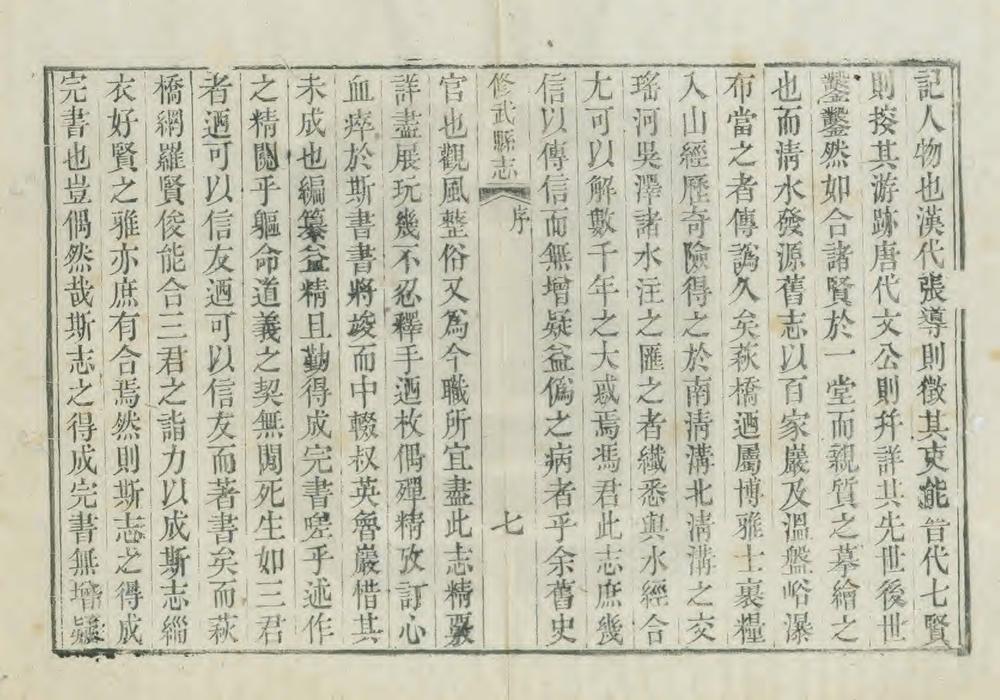 記人物也漢代張導則徵其吏能晉代七賢
則按其游跡唐代文公則幷詳其先世後世
鑿鑿然如合諸賢於一堂而親質之摹繪之
也而淸水發源舊志以百家巖及溫盤峪瀑
布當之者傳譌久矣萩橋迺屬博雅士裹糧
入山經歷奇險得之於南淸溝北淸溝之交
瑤河吳澤諸水注之匯之者纖悉與水經合
尤可以解數千年之大惑焉馮君此志庶幾
信以傳信而無增疑益僞之病者乎余舊史
修武縣志
序
七
官也觀風整俗又爲今職所宜盡此志精覈
詳盡展玩幾不忍釋手迺枚偶殫精攷訂心
血瘁於斯書書將竣而中輟叔英魯巖惜其
未成也編纂益精且勤得成完書嗟乎述作
之精關乎軀命道義之契無間死生如三君
者迺可以信友迺可以信友而著書矣而萩
橋網羅賢俊能合三君之詣力以成斯志緇
衣好賢之雅亦庶有合焉然則斯志之得成
完書也豈偶然哉斯志之得成完書無增疑